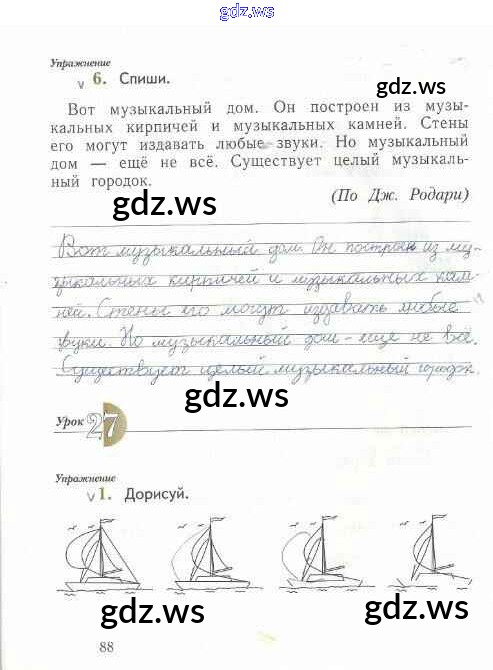 gdz.ws
Упражнение
v 6. Спиши.
gdz.ws
Вот музыкальный дом. Он построен из музы-
кальных кирпичей и музыкальных камней. Стены
его могут издавать любые звуки. Но музыкальный
дом — ещё не всё. Существует целый музыкаль-
ный городок.
(По Дж. Родари)
gdz.ws
Вот музыкальный дом. Он построен из му-
зыкальных кирпичей и музыкальных кам-
ней. Стены его могут издавать любые
звуки. Но музыкальный дом - еще не всё.
Существует целый музыкальный городок.
gdz.ws
Урок 27
Упражнение
v 1. Дорисуй.
gdz.ws
gdz.ws
88